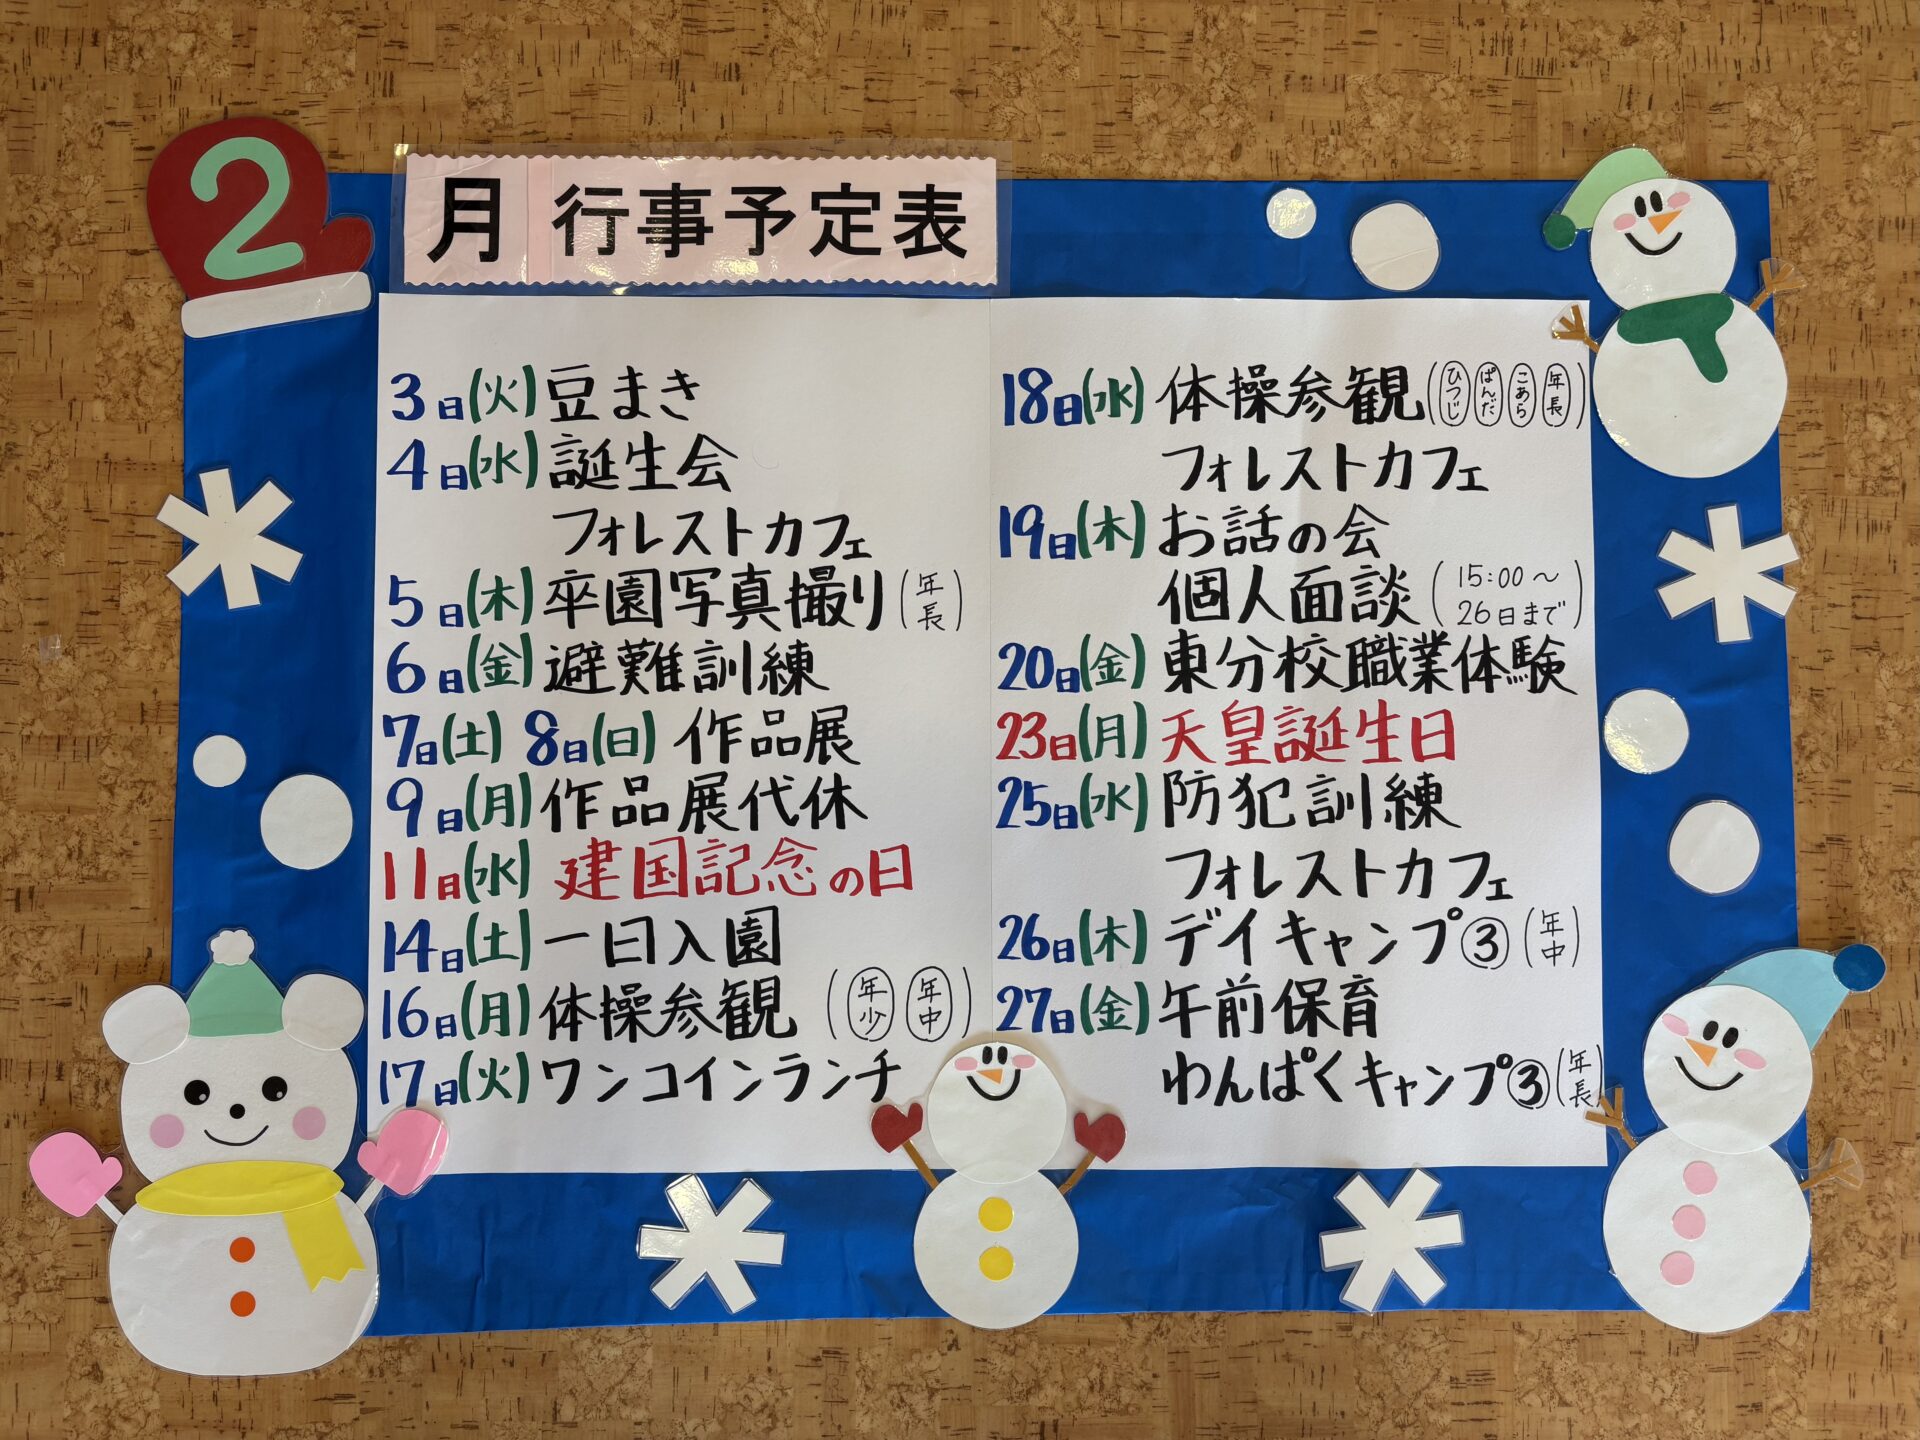 2月 行事予定表
3日(火)豆まき
4日(水)誕生会
フォレストカフェ
5日(木)卒園写真撮り(年長)
6日(金)避難訓練
7日(土) 8日(日) 作品展
9日(月)作品展代休
11日(水) 建国記念の日
14日(土)一日入園
16日(月)体操参観 (年少 年中)
17日(火)ワンコインランチ
18日(水)体操参観(ひつじ ぱんだ こあら 年長)
フォレストカフェ
19日(木)お話の会
個人面談(15:00〜26日まで)
20日(金)東分校職業体験
23日(月)天皇誕生日
25日(水)防犯訓練
フォレストカフェ
26日(木)デイキャンプ③(年中)
27日(金)午前保育
わんぱくキャンプ③(年長)